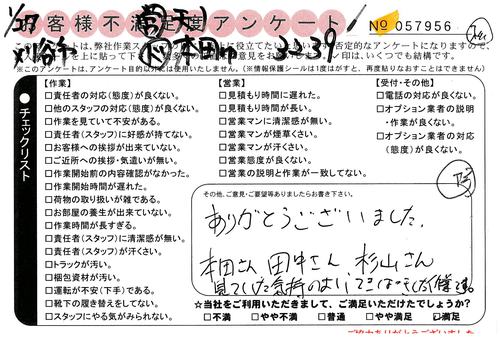 1/27
お客様不満足度アンケート
No 057956
刈谷市
3-2-39
このアンケートは、弊社作業スタッフの
※このアンケートは、アンケート目的以外には使用いたしません。(※情報保護シールは1度はがすと、再度貼りなおすことはできません)
チェックリスト
【作業】
□責任者の対応(態度)が良くない。
□他のスタッフの対応(態度)が良くない。
□作業を見ていて不安がある。
□責任者(スタッフ)に好感が持てない。
□お客様への挨拶が出来ていない。
□ご近所への挨拶・気遣いが無い。
□作業開始前の内容確認がなかった。
□作業開始時間が遅れた。
□荷物の取り扱いが雑である。
□お部屋の養生が出来ていない。
□作業時間が長すぎる。
□責任者(スタッフ)に清潔感が無い。
□責任者(スタッフ)が汗くさい。
□トラックが汚い。
□梱包資材が汚い。
□運転が不安(下手)である。
□靴下の履き替えをしてない。
□スタッフにやる気がみられない。
【営業】
□見積もり時間に遅れた。
□見積もり時間が長い。
□営業マンに清潔感が無い。
□営業マンが煙草くさい。
□営業マンが汗くさい。
□営業態度が良くない。
□営業の説明と作業が一致してない。
【受付・その他】
□電話の対応が良くない。
□オプション業者の説明
・作業が良くない。
□オプション業者の対応
(態度)が良くない。
その他、ご意見・ご要望等ありましたらお書き下さい。
ありがとうございました。
本田さん 田中さん 杉山さん
見ていた気持のよい
★当社をご利用いただきまして、ご満足いただけてでしょうか?
□不満 □やや不満 □普通 □やや満足 □満足
ご協力ありがとうございました